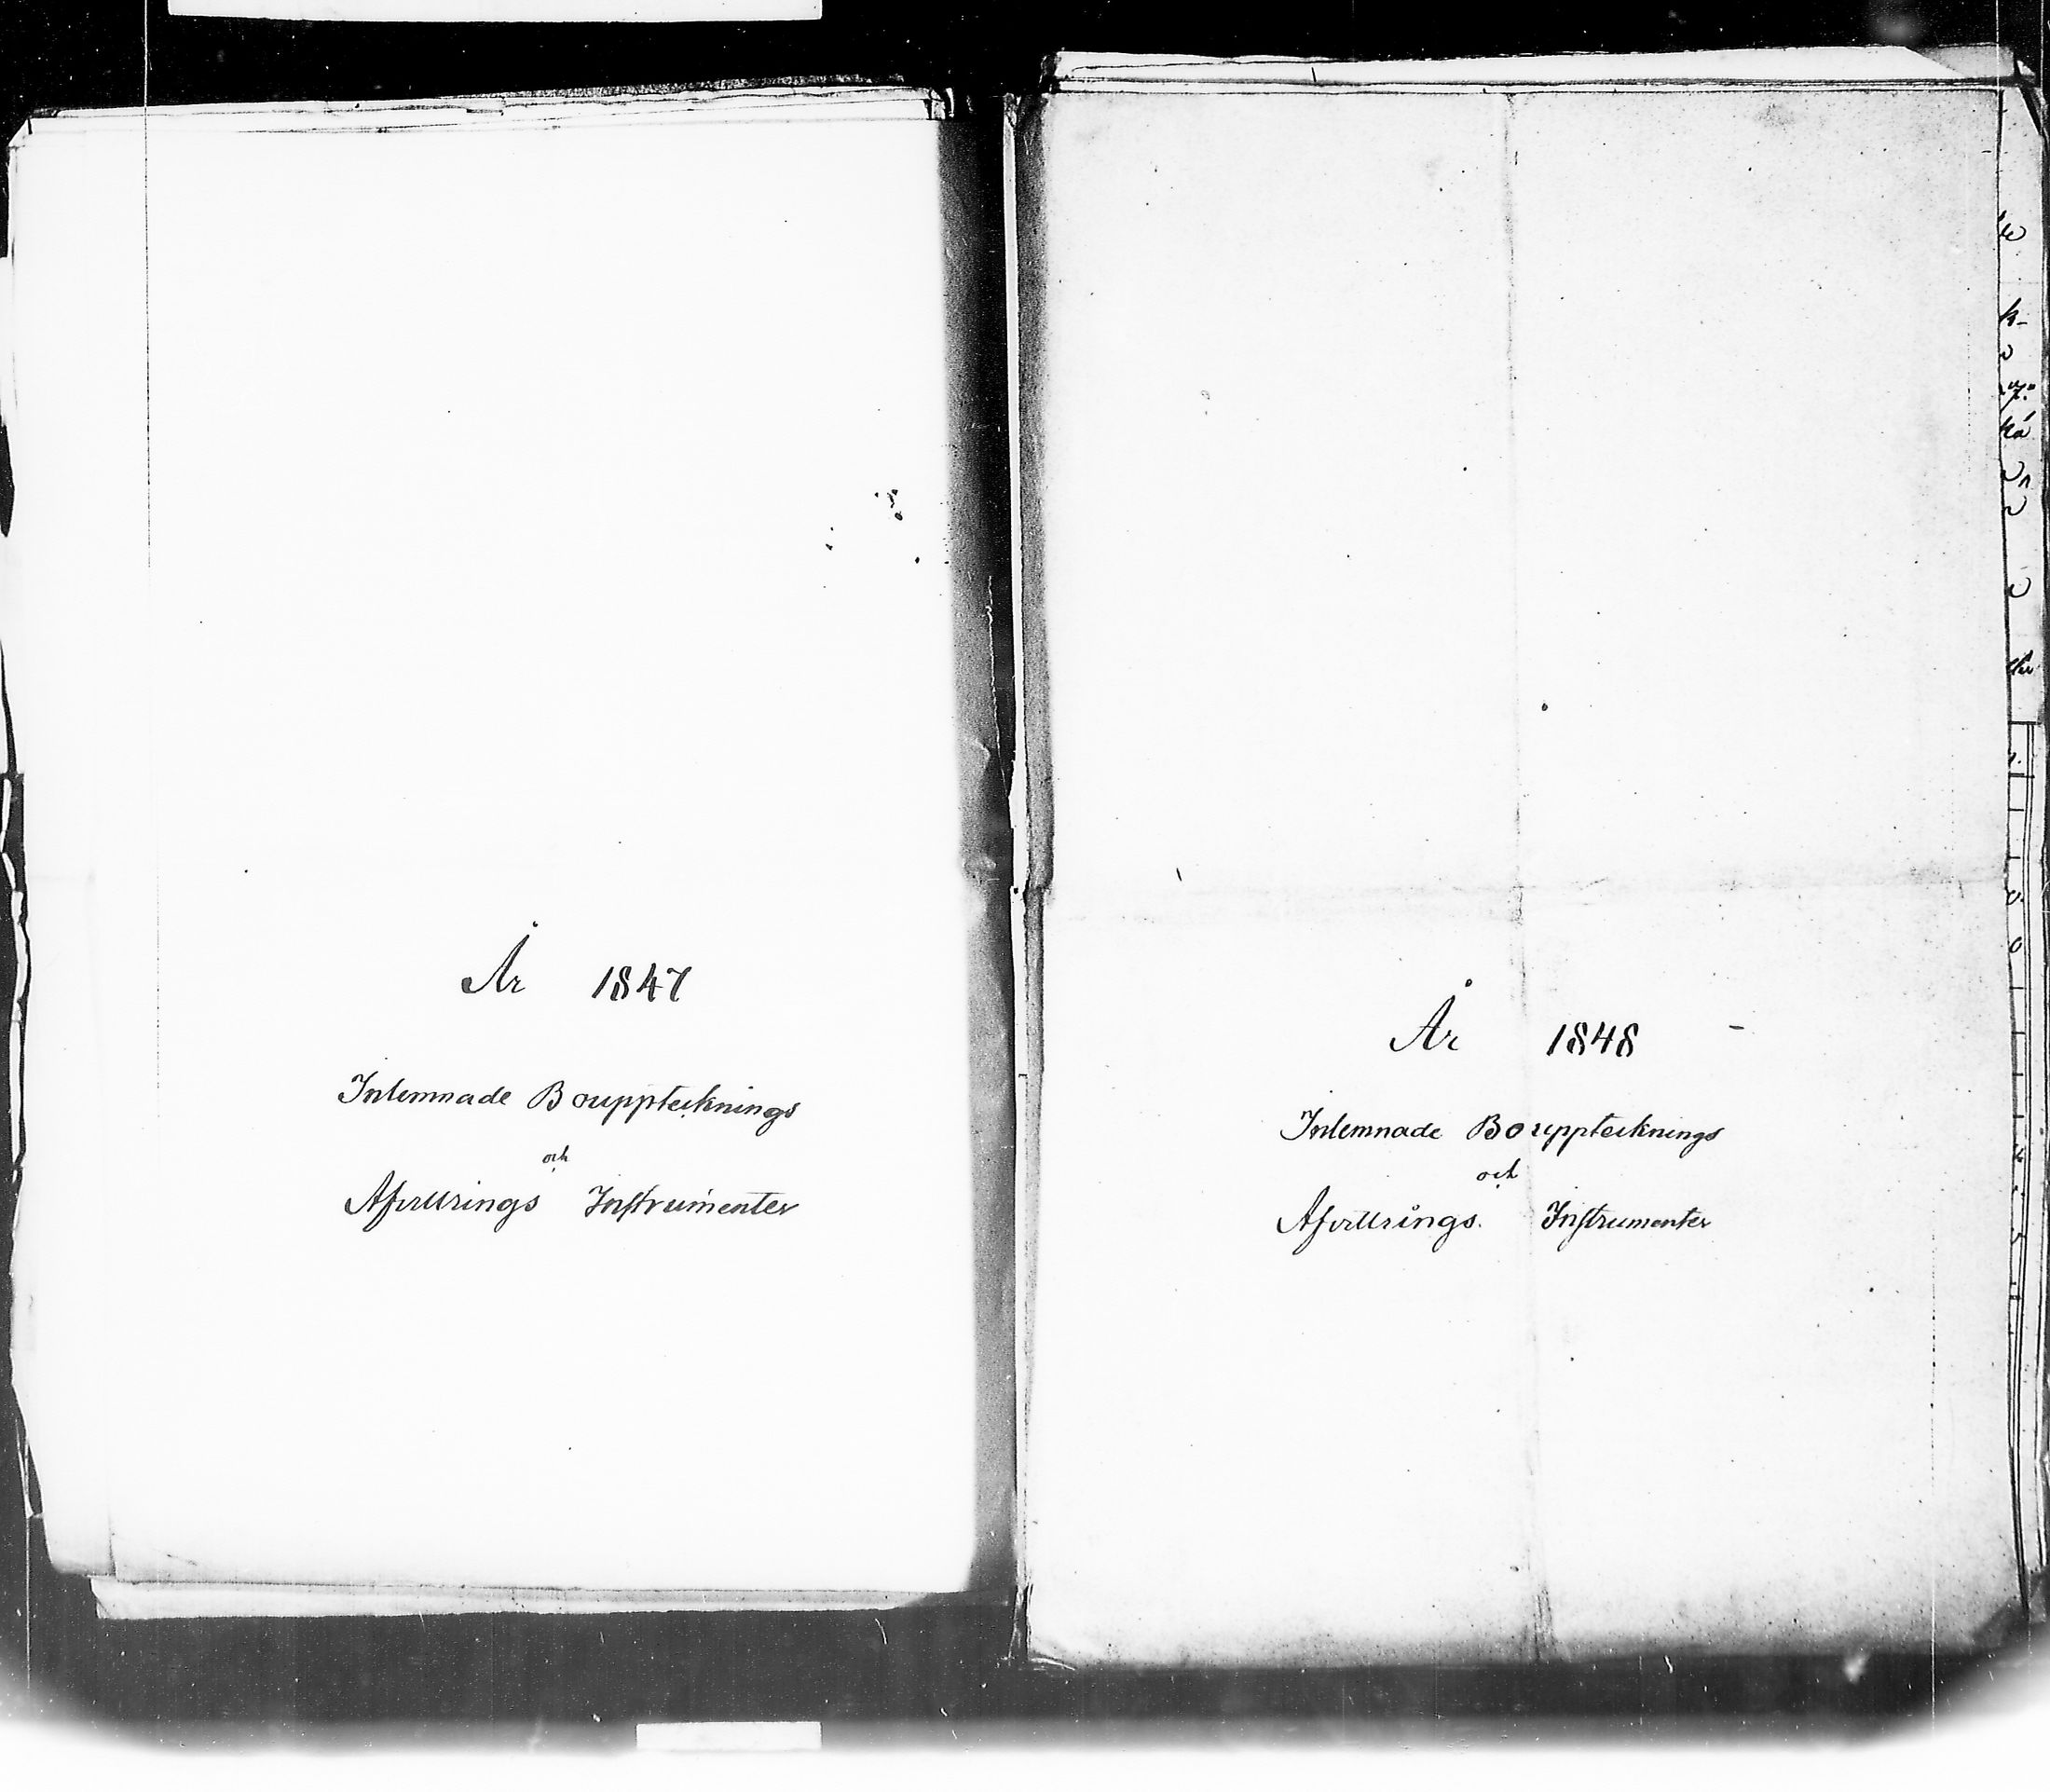 År 1847
Inlemnade Boupptecknings
och
Afvittrings Instrumenter
År 1848
Inlemnade Boupptecknings
och
Afvittrings Instrumenter